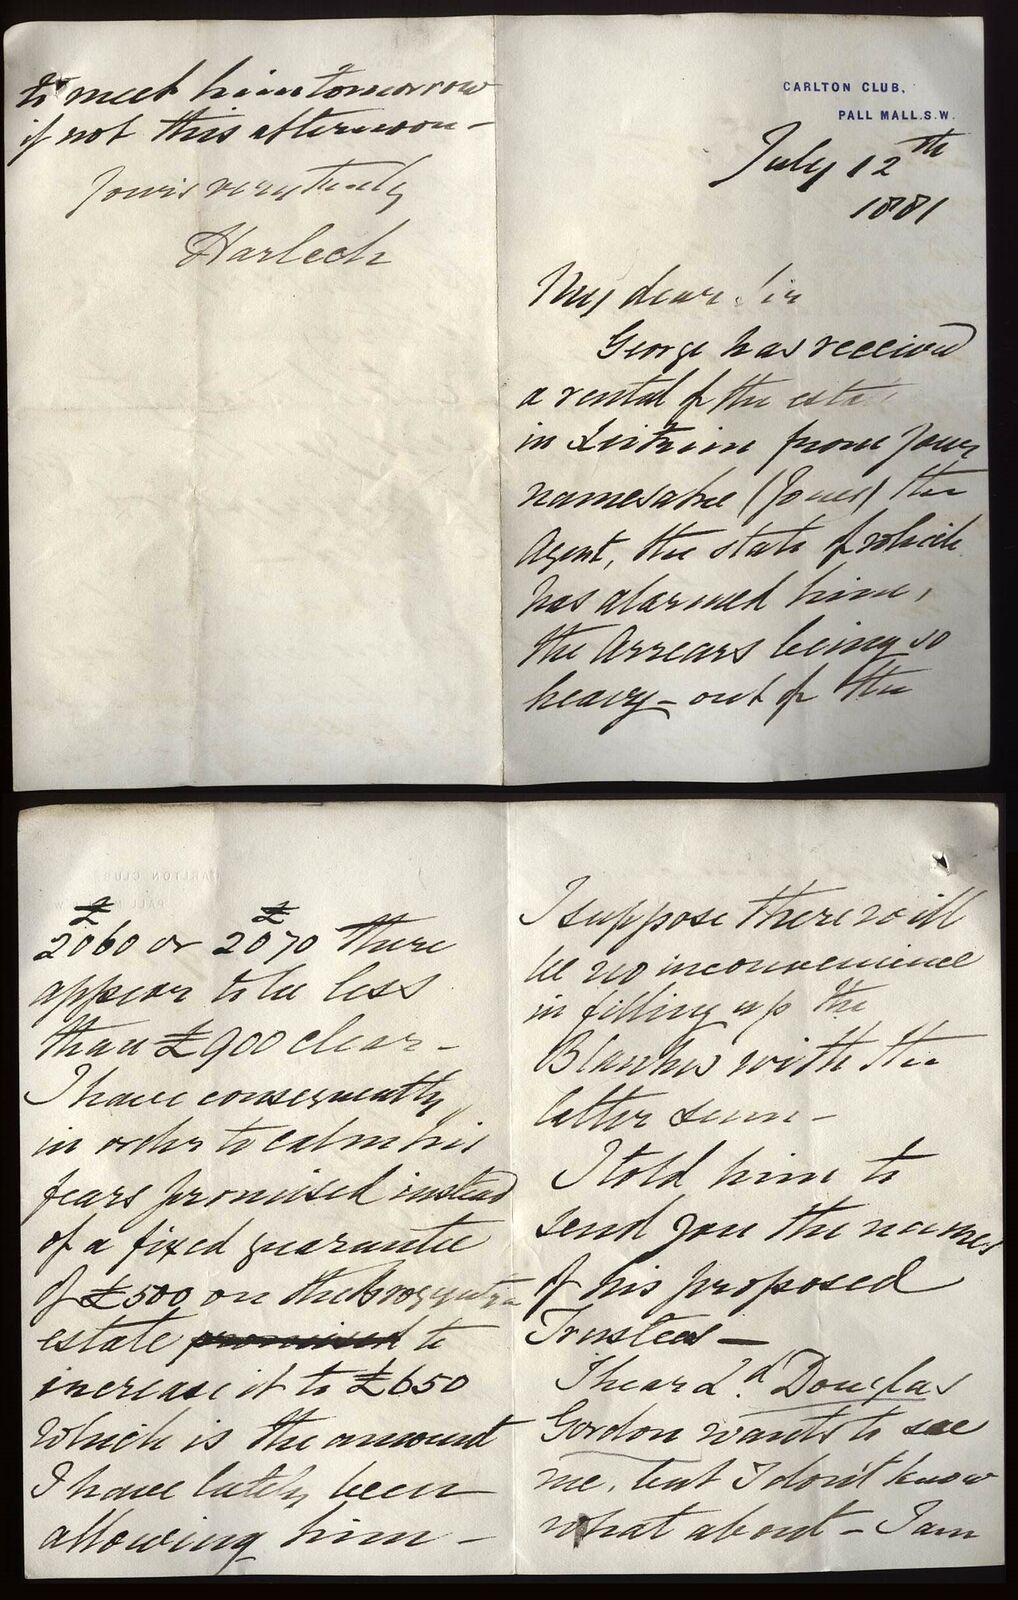 CARLTON CLUB,
PALL MALL. S.W.
July 12th
1881
My dear Sir
George has received
a rental of the esta
in Leitrim from your
namesake (Jones) the
Agent, the state of which
has alarmed him,
the Arrears being so
heavy - out of the
£2060 or £2070 there
appear to be less
than £900 clear -
I have consequently
in order to calm his
fears promised instead
of a fixed guarantee
of £500 on the Brogyntyn
estate promised to
increase it to £650
which is the amount
I have lately been
allowing him -
I suppose there will
be no inconvenience
in filling up the
Blanks with the
latter sum -
I told him to
send you the names
of his proposed
Trustees -
I hear Ld. Douglas
Gordon wants to see
me, but I don't know
what about - I am
to meet him tomorrow
if not this afternoon -
Yours very truly
Harlech